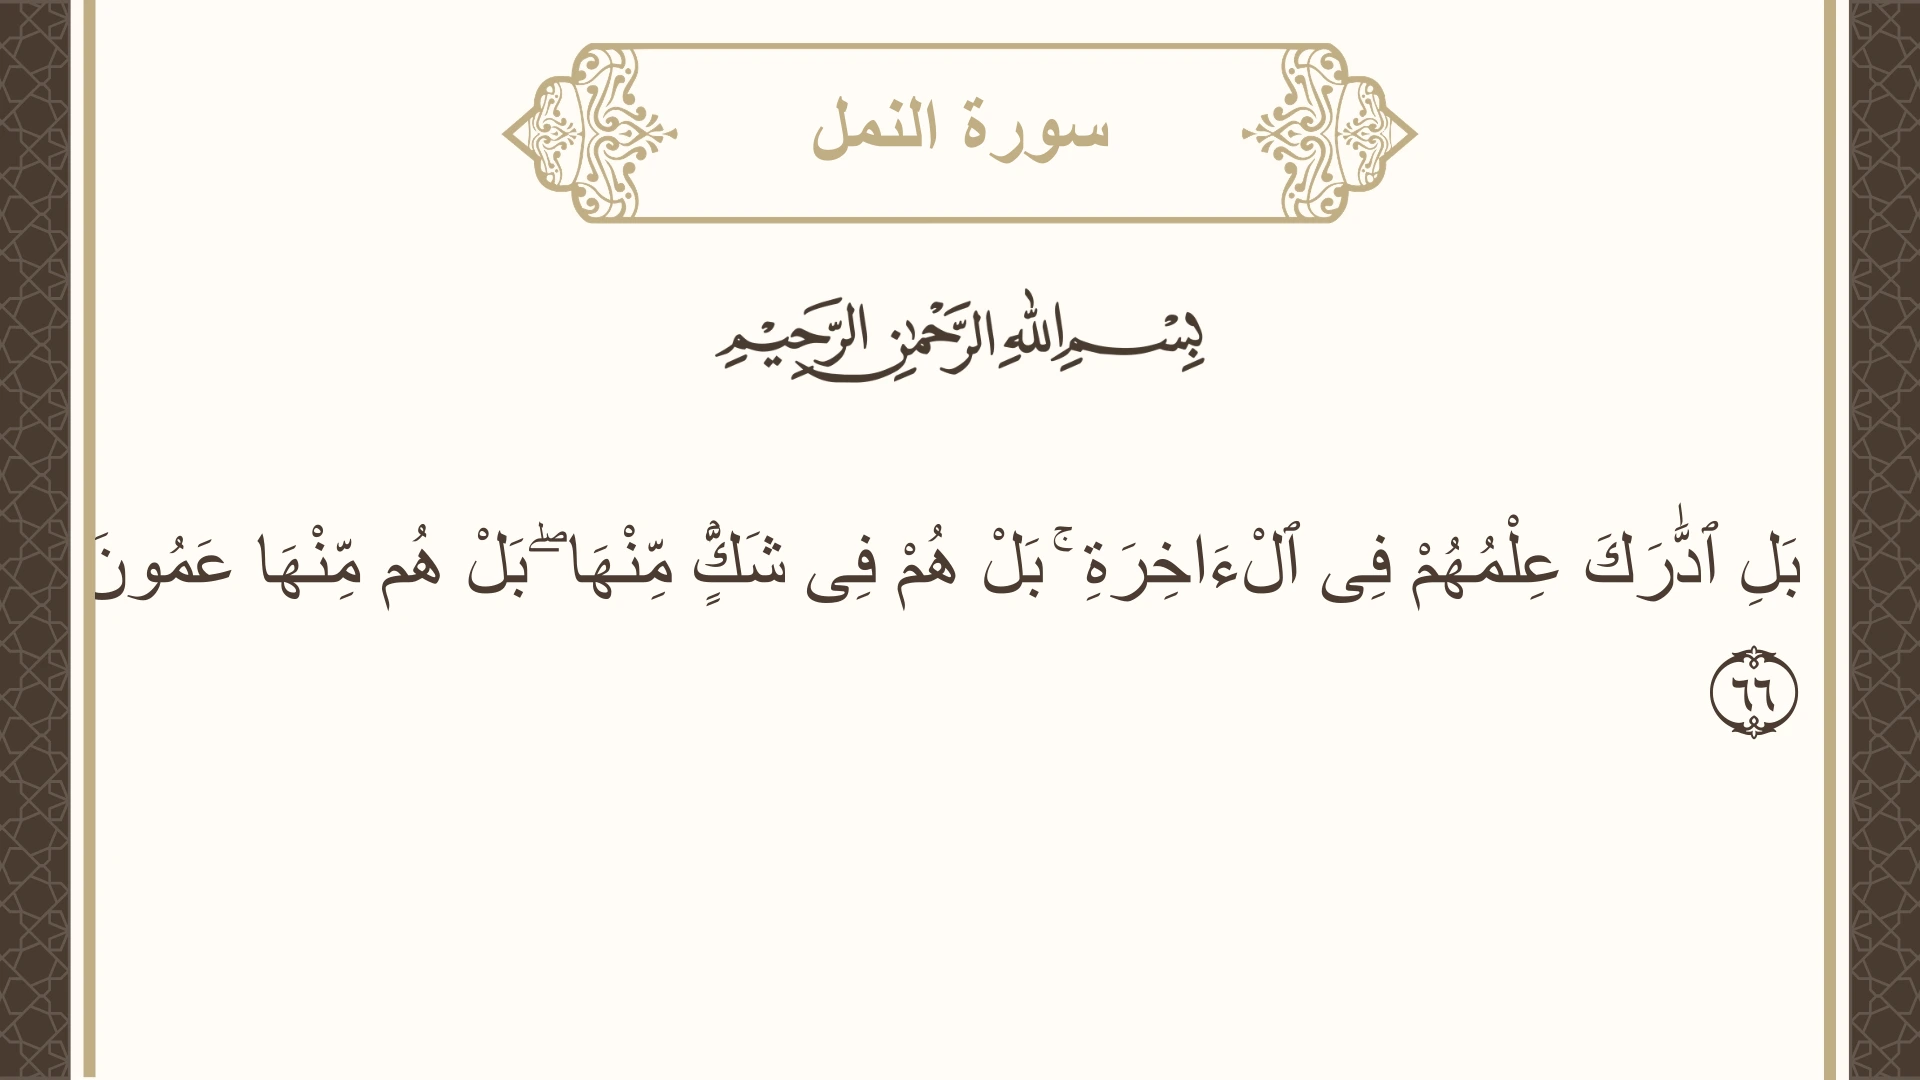 سورة النمل
بِسْمِ اللهِ الرَّحْمٰنِ الرَّحِيْمِ
بَلِ ٱدَّٰرَكَ عِلْمُهُمْ فِى ٱلْءَاخِرَةِ ۚ بَلْ هُمْ فِى شَكٍّ مِّنْهَا ۖ بَلْ هُم مِّنْهَا عَمُونَ
٦٦